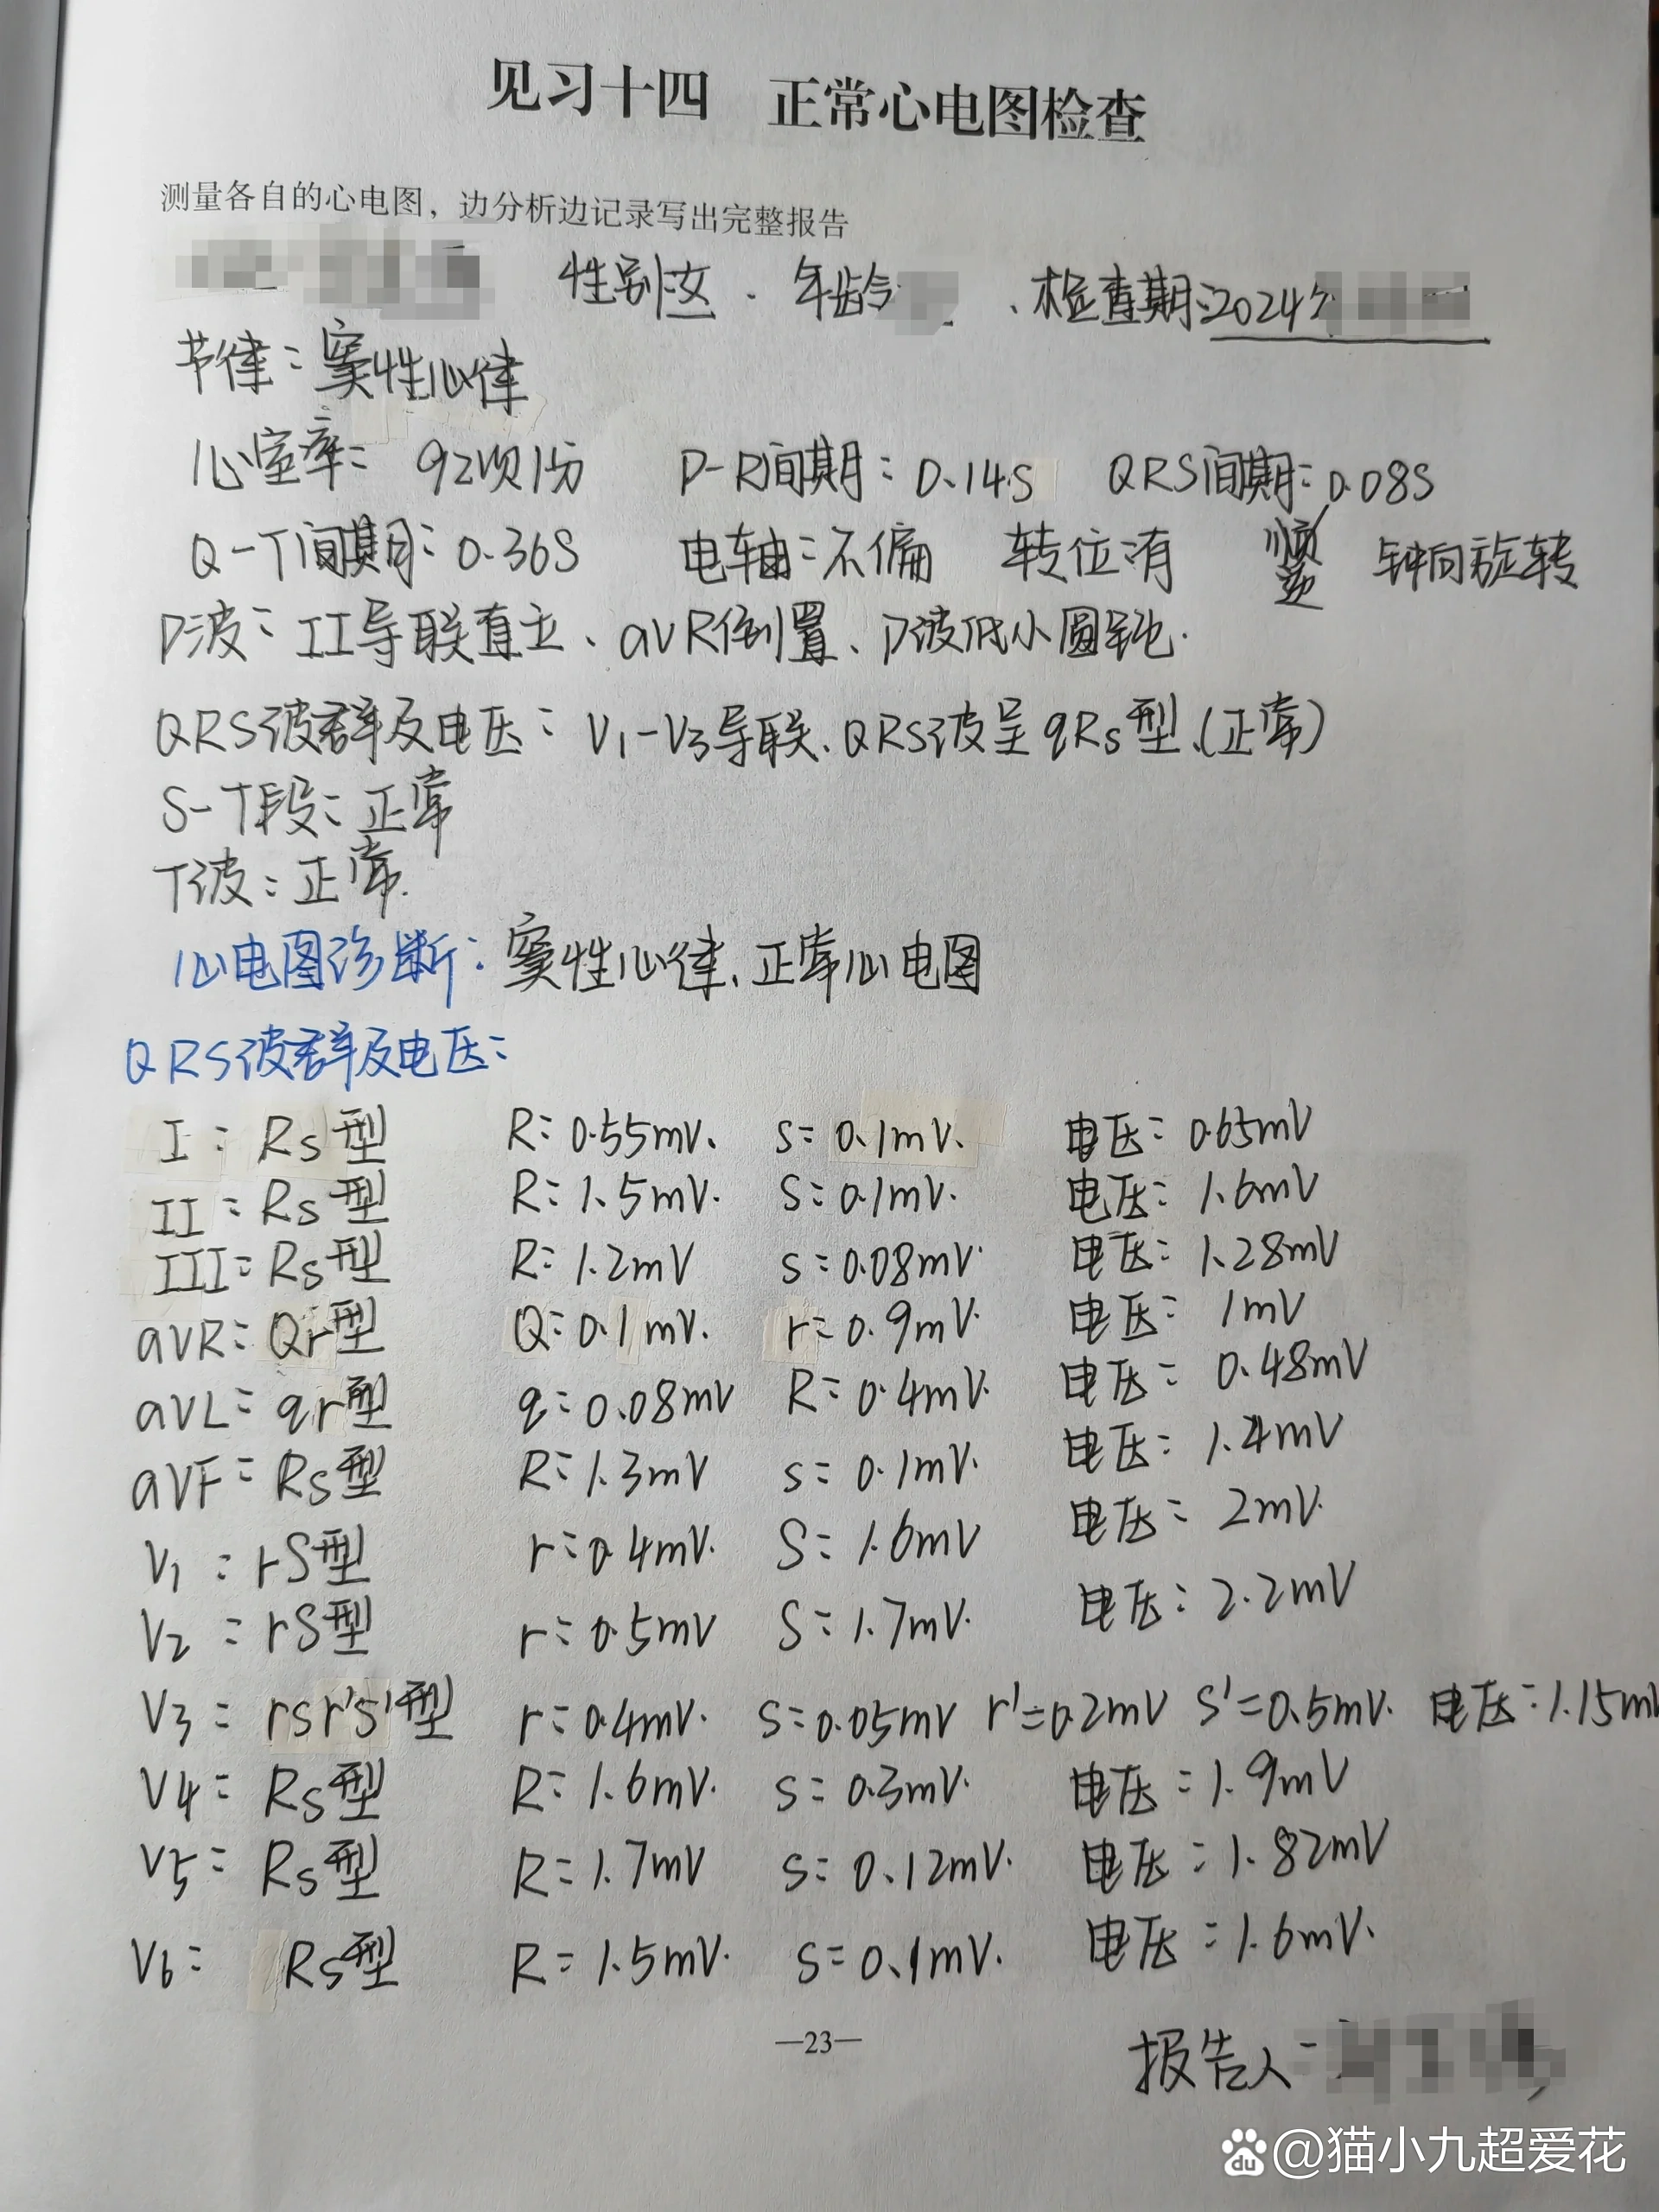 见习十四 正常心电图检查
测量各自的心电图，边分析边记录写出完整报告
性别:女. 年龄 、检查期:2024年
节律:窦性心律
心室率: 92次/分 P-R间期: 0.14S QRS间期: 0.08S
Q-T间期: 0.36S 电轴:不偏 转位:有 顺 钟向旋转
逆
P波: II导联直立、aVR倒置、P波低小圆钝.
QRS波群及电压: V1-V3导联、QRS波呈qRs型、(正常)
S-T段:正常
T波:正常.
心电图诊断:窦性心律、正常心电图
QRS波群及电压:
I: Rs型 R:0.55mV. s:0.1mV. 电压:0.65mV
II: Rs型 R:1.5mV. S:0.1mV. 电压:1.6mV
III: Rs型 R:1.2mV s:0.08mV. 电压:1.28mV
aVR: Qr型 Q:0.1mV. r:0.9mV. 电压: 1mV
aVL: qr型 q:0.08mV R:0.4mV. 电压: 0.48mV
aVF: Rs型 R:1.3mV s:0.1mV. 电压:1.4mV
V1: rS型 r:0.4mV. S:1.6mV 电压: 2mV.
V2: rS型 r:0.5mV S:1.7mV. 电压:2.2mV
V3: rsr's'型 r:0.4mV. s:0.05mV r'=0.2mV s'=0.5mV. 电压:1.15mV
V4: Rs型 R:1.6mV. s:0.3mV. 电压:1.9mV
V5: Rs型 R:1.7mV s:0.12mV. 电压:1.82mV
V6: Rs型 R=1.5mV. s=0.1mV. 电压:1.6mV.
—23—
报告人:
du @猫小九超爱花